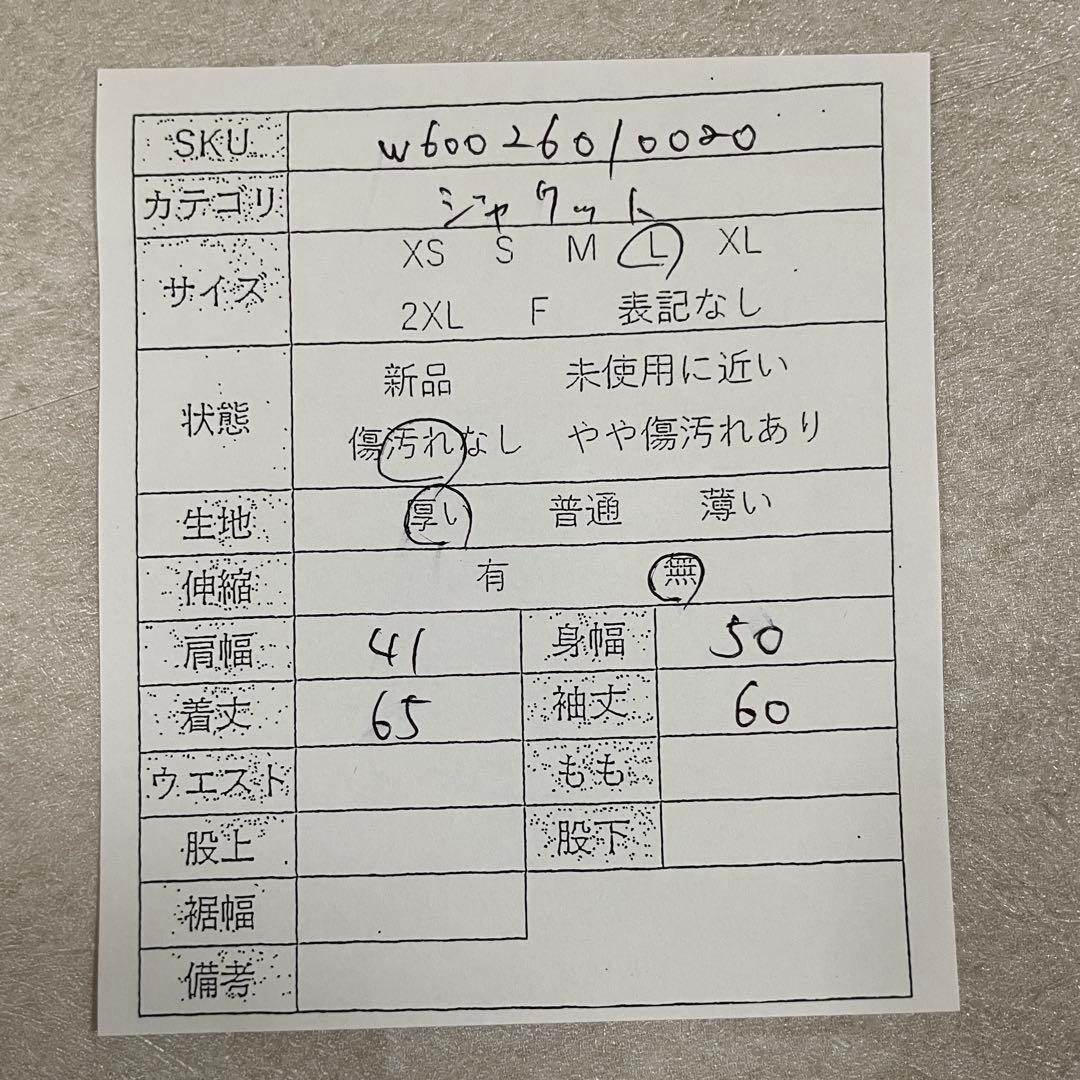 SKU w60026010020
カテゴリ ジャケット
サイズ XS S M L XL
2XL F 表記なし
状態 新品 未使用に近い
傷汚れなし やや傷汚れあり
生地 厚い 普通 薄い
伸縮 有 無
肩幅 41 身幅 50
着丈 65 袖丈 60
ウエスト もも
股上 股下
裾幅
備考